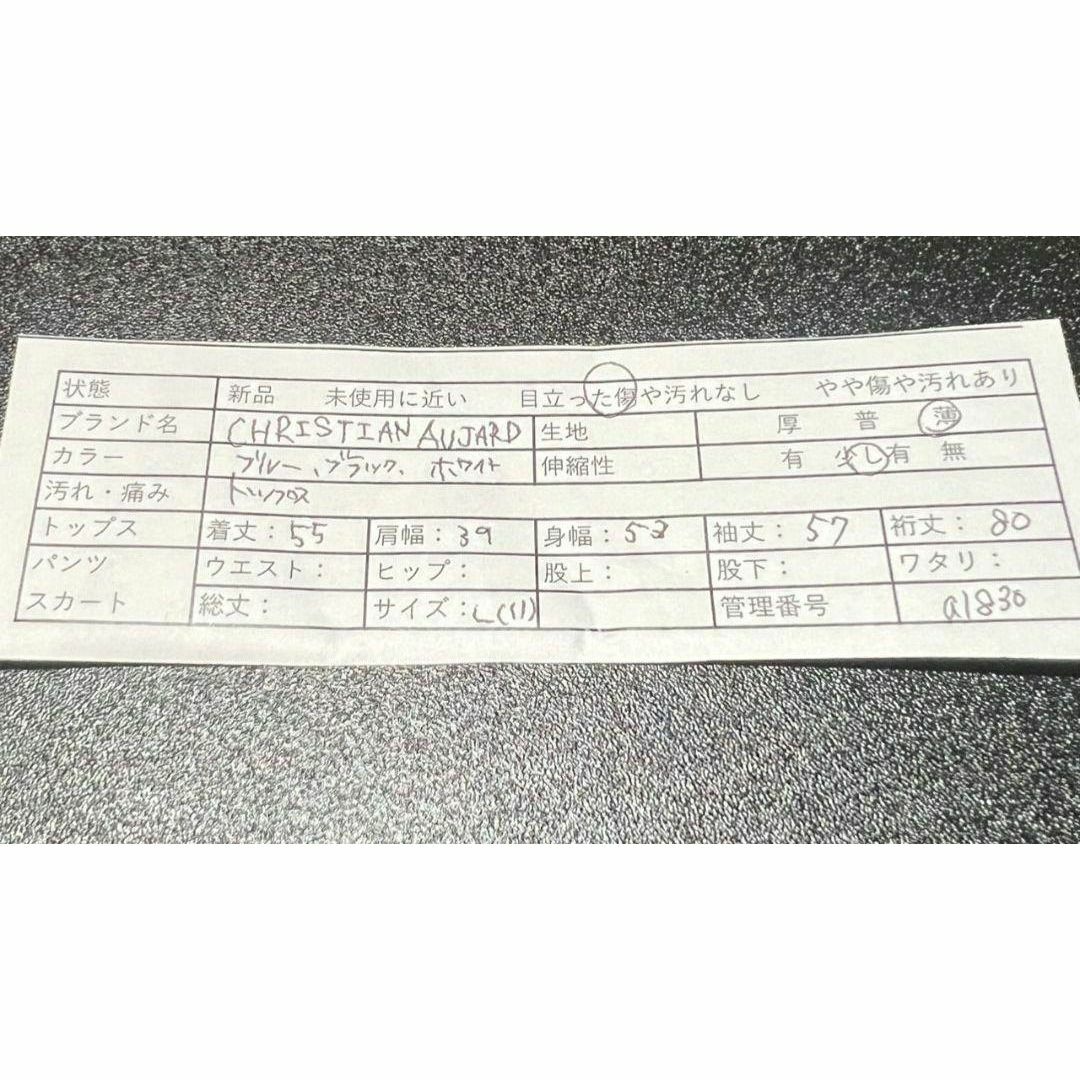 状態 新品 未使用に近い 目立った傷や汚れなし やや傷や汚れあり
ブランド名 CHRISTIAN AUJARD 生地 厚 普 薄
カラー ブルー、ブラック、ホワイト 伸縮性 有 少し有 無
汚れ・痛み
トップス 着丈：55 肩幅：39 身幅： 袖丈：57 裄丈：80
パンツ ウエスト： ヒップ： 股上： 股下： ワタリ：
スカート 総丈： サイズ：L(11) 管理番号 a1830